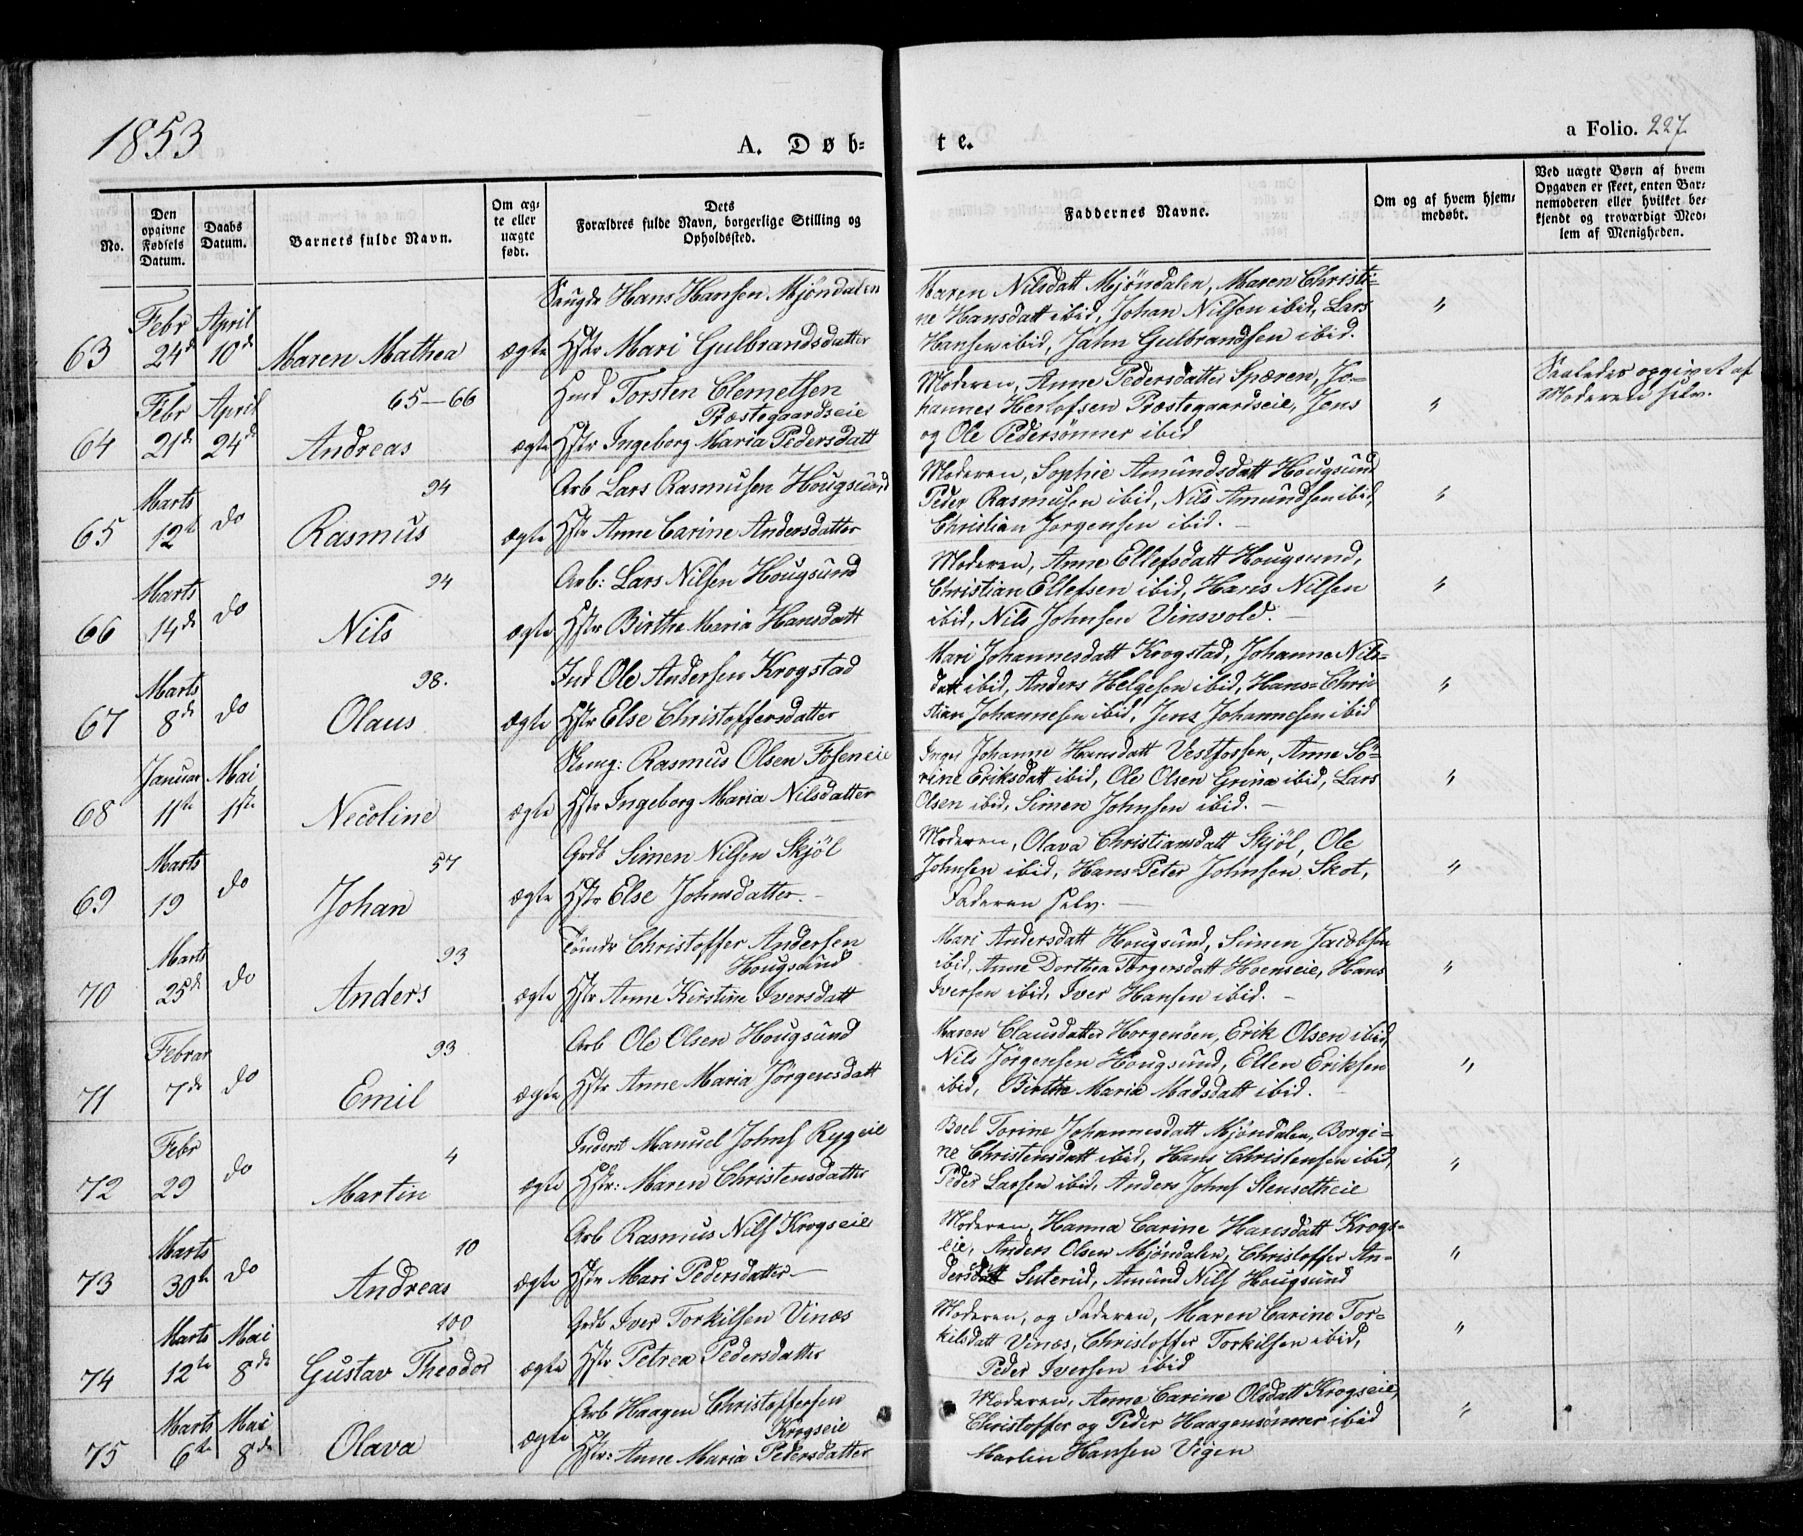 1853
A. Døb-
te.
a Folio. 227
No.
Den opgivne Fødsels Datum.
Daabs Datum.
Barnets fulde Navn.
Om ægte eller uægte født.
Dets Forældres fulde Navn, borgerlige Stilling og Opholdssted.
Faddernes Navne.
Om og af hvem hjemmedøbt.
Ved uægte Børn af hvem Opgaven er skeet, enten Barnemoderen eller hvilket bekjendt og troværdigt Medlem af Menigheden.
63 Febr 24de April 10de Maren Mathea ægte
Saugd Hans Hansen Mjöndalen
Hstr Mari Gulbrandsdatter
Maren Nilsdatt Mjöndalen, Maren Christi-
ne Hansdatt ibid, Johan Nilsen ibid, Lars
Hansen ibid, Jahn Gulbrandsen ibid.
"
64 Febr 21de April 24de 65-66 Andreas ægte
Hmd Torsten Clemetsen
Præstegaardseie
Hstr Ingeborg Maria Pedersdatt
Moderen, Anne Pedersdatter Spæren, Jo-
hannes Herlofsen Præstegaardseie, Jens
og Ole Pedersønner ibid
"
Saaledes opgivet af
Moderen selv.
65 Marts 12te do 94 Rasmus ægte
Arb Lars Rasmusen Hougsund
Hstr Anne Carine Andersdatter
Moderen, Sophie Amundsdatt Hougsund
Peder Rasmusen ibid, Nils Amundsen ibid,
Christian Jørgensen ibid.
"
66 Marts 14de do 94 Nils ægte
Arb: Lars Nilsen Hougsund
Hstr Birthe Maria Hansdatt
Moderen, Anne Ellefsdatt Hougsund,
Christian Ellefsen ibid, Hans Nilsen
ibid, Nils Johnsen Vinsvold.
"
67 Marts 8de do 98. Olaus ægte
Ind Ole Andersen Krogstad
Hstr Else Christoffersdatter
Mari Johannesdatt Krogstad, Johanne Nils-
datt ibid, Anders Helgesen ibid, Hans-Chri
stian Johannesen ibid, Jens Johannesen ibid
"
68 Januar 11te Mai 1ste Necoline ægte
Rasmus Olsen Foseneie
Hstr Ingeborg Maria Nilsdatter
Inger Johanne Hansdatt Vestfossen, Anne Sö-
rine Eriksdatt ibid, Ole Olsen Grina ibid, Lars
Olsen ibid, Simen Johnsen ibid.
"
69 Marts 19 do 57 Johan ægte
Grdb Simen Nilsen Skjöl
Hstr Else Johnsdatter
Moderen, Olava Christiansdatt Skjöl, Ole
Johnsen ibid, Hans Peter Johnsen Skot,
Faderen selv.
"
70 Marts 25de do 93 Anders ægte
Tömdr Christoffer Andersen
Hougsund
Hstr Anne Kirstine Iversdatt
Mari Andersdatt Hougsund, Simen Jacobsen
ibid, Anne Dorthea Torgersdatt Hoenseie, Hans
Iversen ibid, Iver Hansen ibid.
"
71 Februar 7de do 93 Emil ægte
Arb Ole Olsen Hougsund
Hstr Anne Maria Jørgensdatt
Maren Clausdatter Horgenöen, Erik Olsen ibid
Nils Jörgensen Hougsund, Ellen Eriksen
ibid, Birthe Maria Madsdatt ibid.
"
72 Febr 29 do 4 Martin ægte
Inderst Manuel Johnf Rygeie
Hstr: Maren Christensdatter
Boel Torine Johannesdatt Mjöndalen, Borgi-
ne Christensdatt ibid, Hans Christensen ibid,
Peder Larsen ibid, Anders Johnf Stensetheie
"
73 Marts 30te do 10 Andreas ægte
Arb Rasmus Nilf Krogseie
Hstr Mari Pedersdatter
Moderen, Hanna Carine Hansdatt Krogs-
eie, Anders Olsen Mjöndalen, Christoffer An-
dersdatt Suterud, Amund Nilf Hougsund
"
74 Marts 12te Mai 8de 100 Gustav Theodor ægte
Grdb Iver Torkilsen Vinæs
Hstr Petrea Pedersdatter
Moderen, og Faderen, Maren Carine Tor-
kilsdatt Vinæs, Christoffer Torkilsen ibid,
Peder Iversen ibid
"
75 Marts 6te Mai 8de Olava ægte
Arb Haagen Christoffersen
Krogseie
Hstr: Anne Maria Pedersdatter
Moderen, Anne Carine Olsdatt Krogseie,
Christoffer og Peder Haagensönner ibid
Martin Hansen Vigen
"